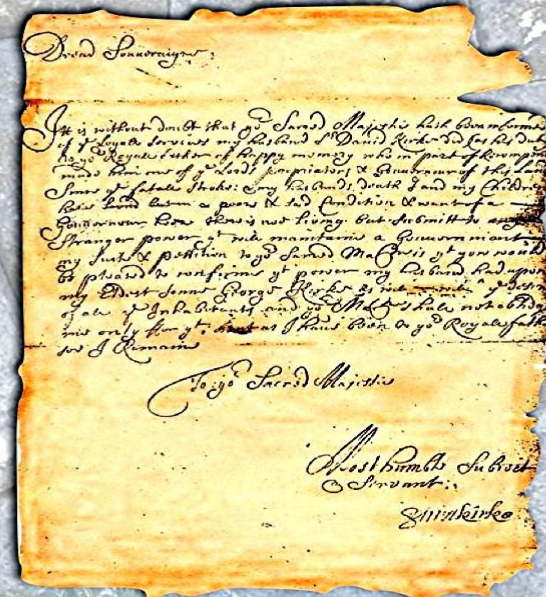 Dread Souveraigne;
Itt is without doubt that yoʳ Sacred Majestie hath been informe
of yᵉ Loyale services my husband Sʳ David Kirke did
to yoʳ Royale father of happy memory who in part of
made him one of yᵉ Lords proprietors & Gouvernour of this
Since yᵉ fatale stroke: & my husbands death & my Children
have lived been a poore & sad Condition & want of a
Gouvernour heer there is noe living but submitt to
Stranger power yᵗ will maintaine a Gouvernment
my suite & petition to yoʳ Sacred Maᵗⁱᵉ is yᵗ you would
be pleased to confirme yᵗ power my husband had upon
my Eldest Sonne George Kirke as well yᵉ
of ale yᵉ Inhabitants and yoʳ Maᵗⁱᵉ shale not
me only for yᵗ as I have been to yoʳ Royale fath
soe I Remaine
To yoʳ Sacred Majestie
Most humble Subiect
& Servant:
Kirke